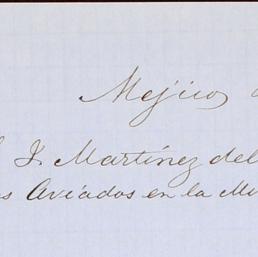 Mejico
J. Martínez del
Aviados en la